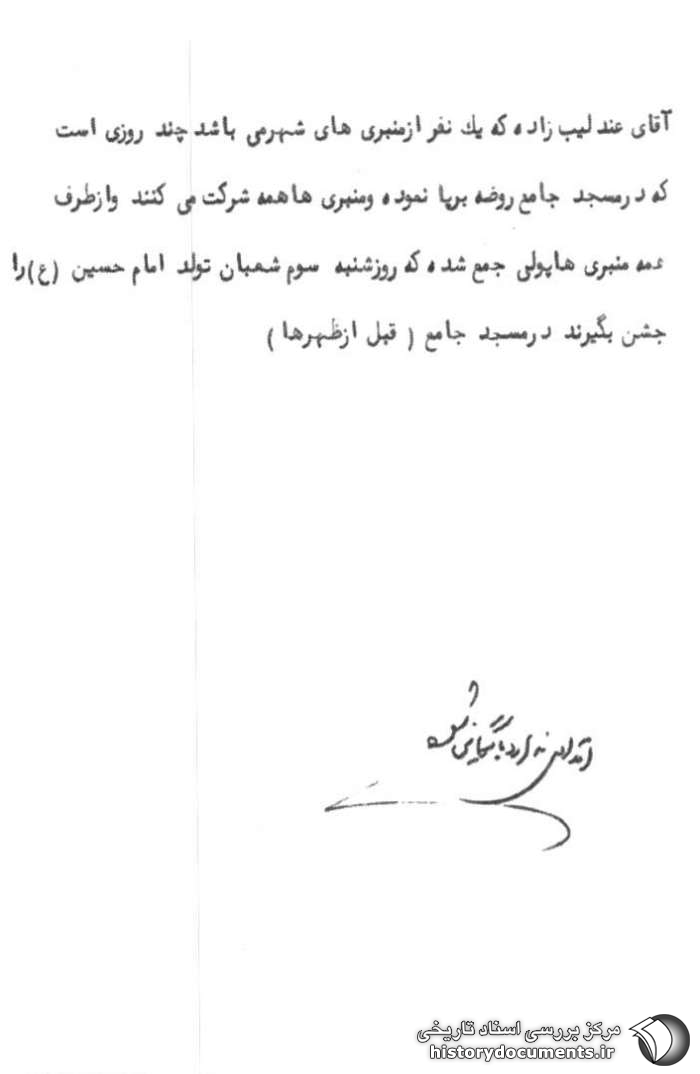 آقای عندلیب زاده که یك نفر ازمنبری های شهرمی باشد چند روزی است
که درمسجد جامع روضه برپا نموده ومنبری هاهمه شرکت می کنند وازطرف
همه منبری هاپولی جمع شده که روزشنبه سوم شعبان تولد امام حسین (ع)را
جشن بگیرند درمسجد جامع ( قبل ازظهرها )
اقدامی ندارد بایگانی شود
مرکز بررسی اسناد تاریخی
historydocuments.ir